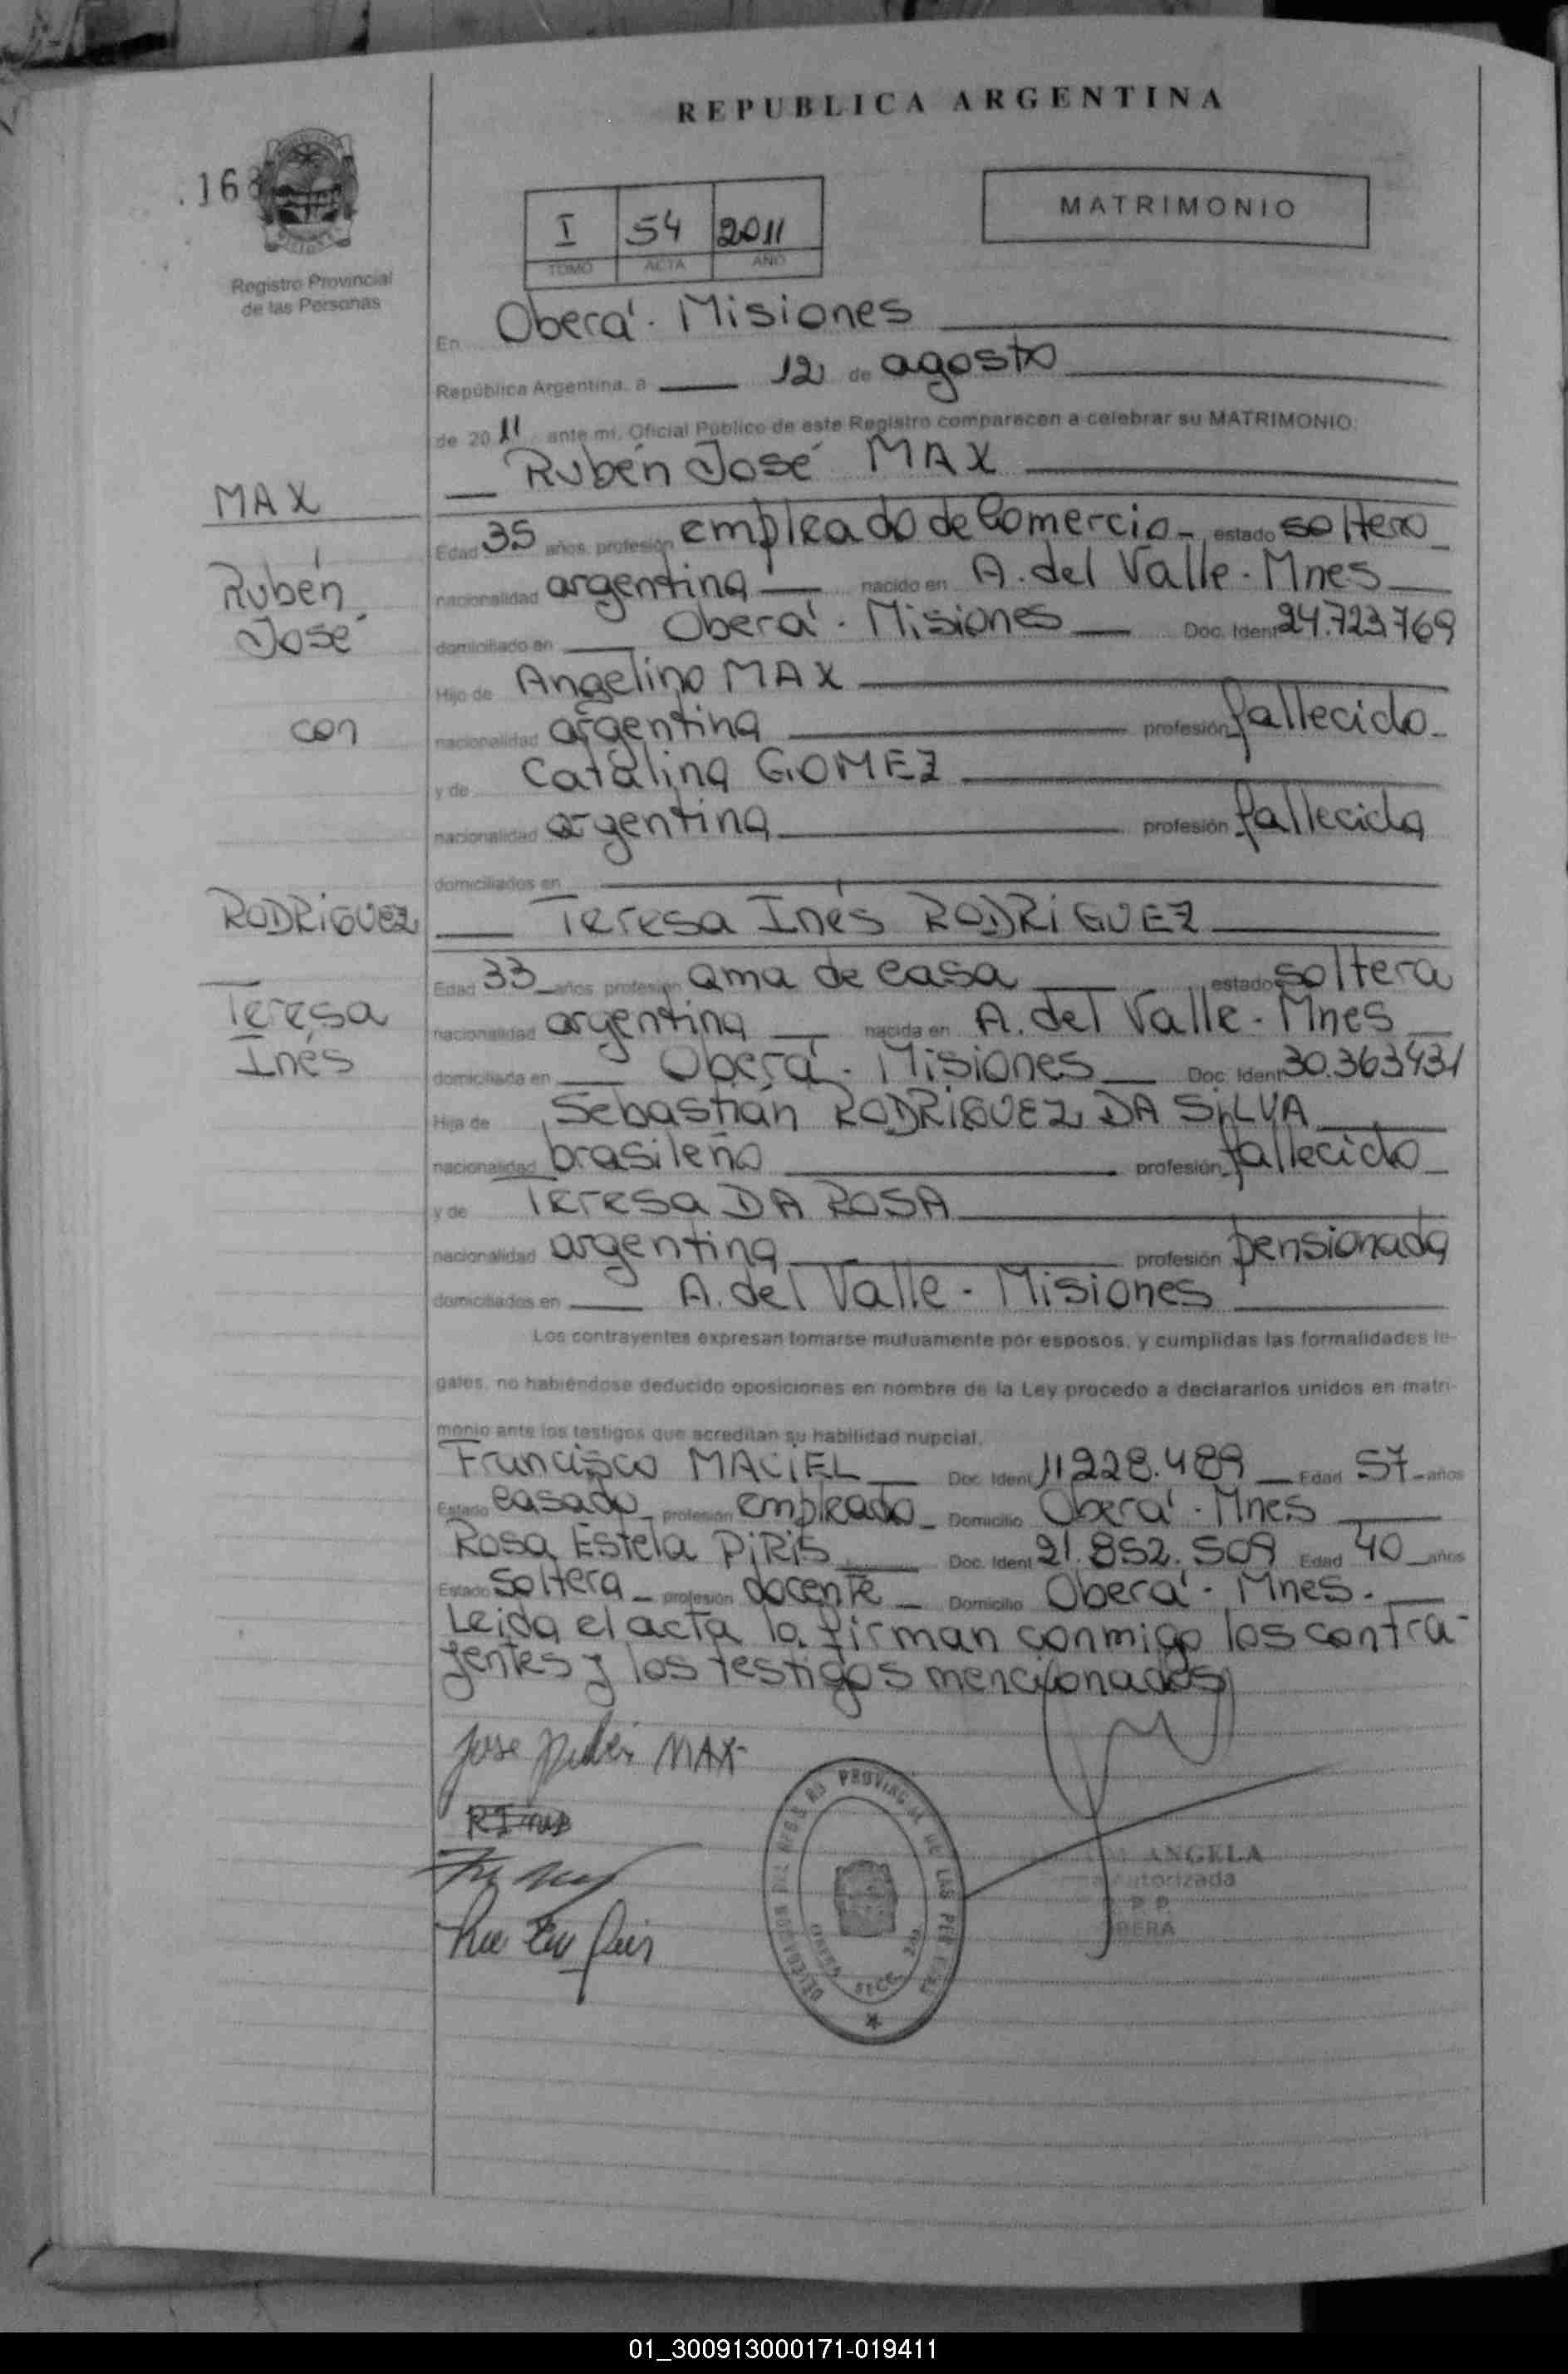 REPUBLICA ARGENTINA
MATRIMONIO
I 54 2011
TOMO ACTA AÑO
Registro Provincial
de las Personas
En Oberá - Misiones
República Argentina, a 12 de agosto
de 2011 ante mi, Oficial Público de este Registro comparecen a celebrar su MATRIMONIO.
Rubén José MAX
MAX
Edad 35 años, profesión empleado de Comercio - estado soltero
Rubén
nacionalidad argentina nacido en A. del Valle - Mnes
José
domiciliado en Oberá - Misiones Doc. Ident 24.723.769
Hijo de Angelino MAX
con
nacionalidad argentina profesión fallecido
y de Catalina GOMEZ
nacionalidad argentina profesión fallecida
domiciliados en
RODRIGUEZ
Teresa Inés RODRIGUEZ
Edad 33 años, profesión ama de casa estado soltera
Teresa
nacionalidad argentina nacida en A. del Valle - Mnes
Inés
domiciliada en Oberá - Misiones Doc. Ident 30.363.431
Hija de Sebastián RODRIGUEZ DA SILVA
nacionalidad brasileño profesión fallecido
y de Teresa DA ROSA
nacionalidad argentina profesión pensionada
domiciliados en A. del Valle - Misiones
Los contrayentes expresan tomarse mutuamente por esposos, y cumplidas las formalidades le-
gales, no habiéndose deducido oposiciones en nombre de la Ley procedo a declararlos unidos en matri-
monio ante los testigos que acreditan su habilidad nupcial.
Francisco MACIEL Doc. Ident 11228.489 Edad 57 años
Estado casado profesión empleado Domicilio Oberá - Mnes
Rosa Estela PIRIS Doc. Ident 21.852.509 Edad 40 años
Estado soltera profesión docente Domicilio Oberá - Mnes.
Leida el acta la firman conmigo los contra-
yentes y los testigos mencionados
Jose Rubén MAX
ANGELA
Autorizada
01_300913000171-019411